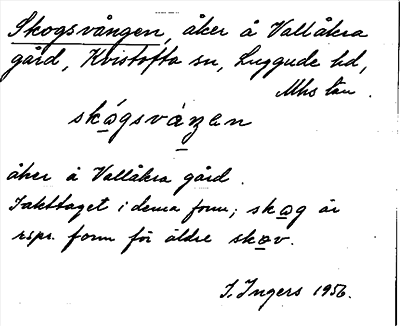 Skogsvången, åker å Vallåkra
gård, Kvistofta sn, Luggude hd,
Mhs län.
skǫ́gsváŋen
åker å Vallåkra gård.
Iakttaget i denna form; skog är
rspr. form för äldre skov.
I. Ingers 1956.